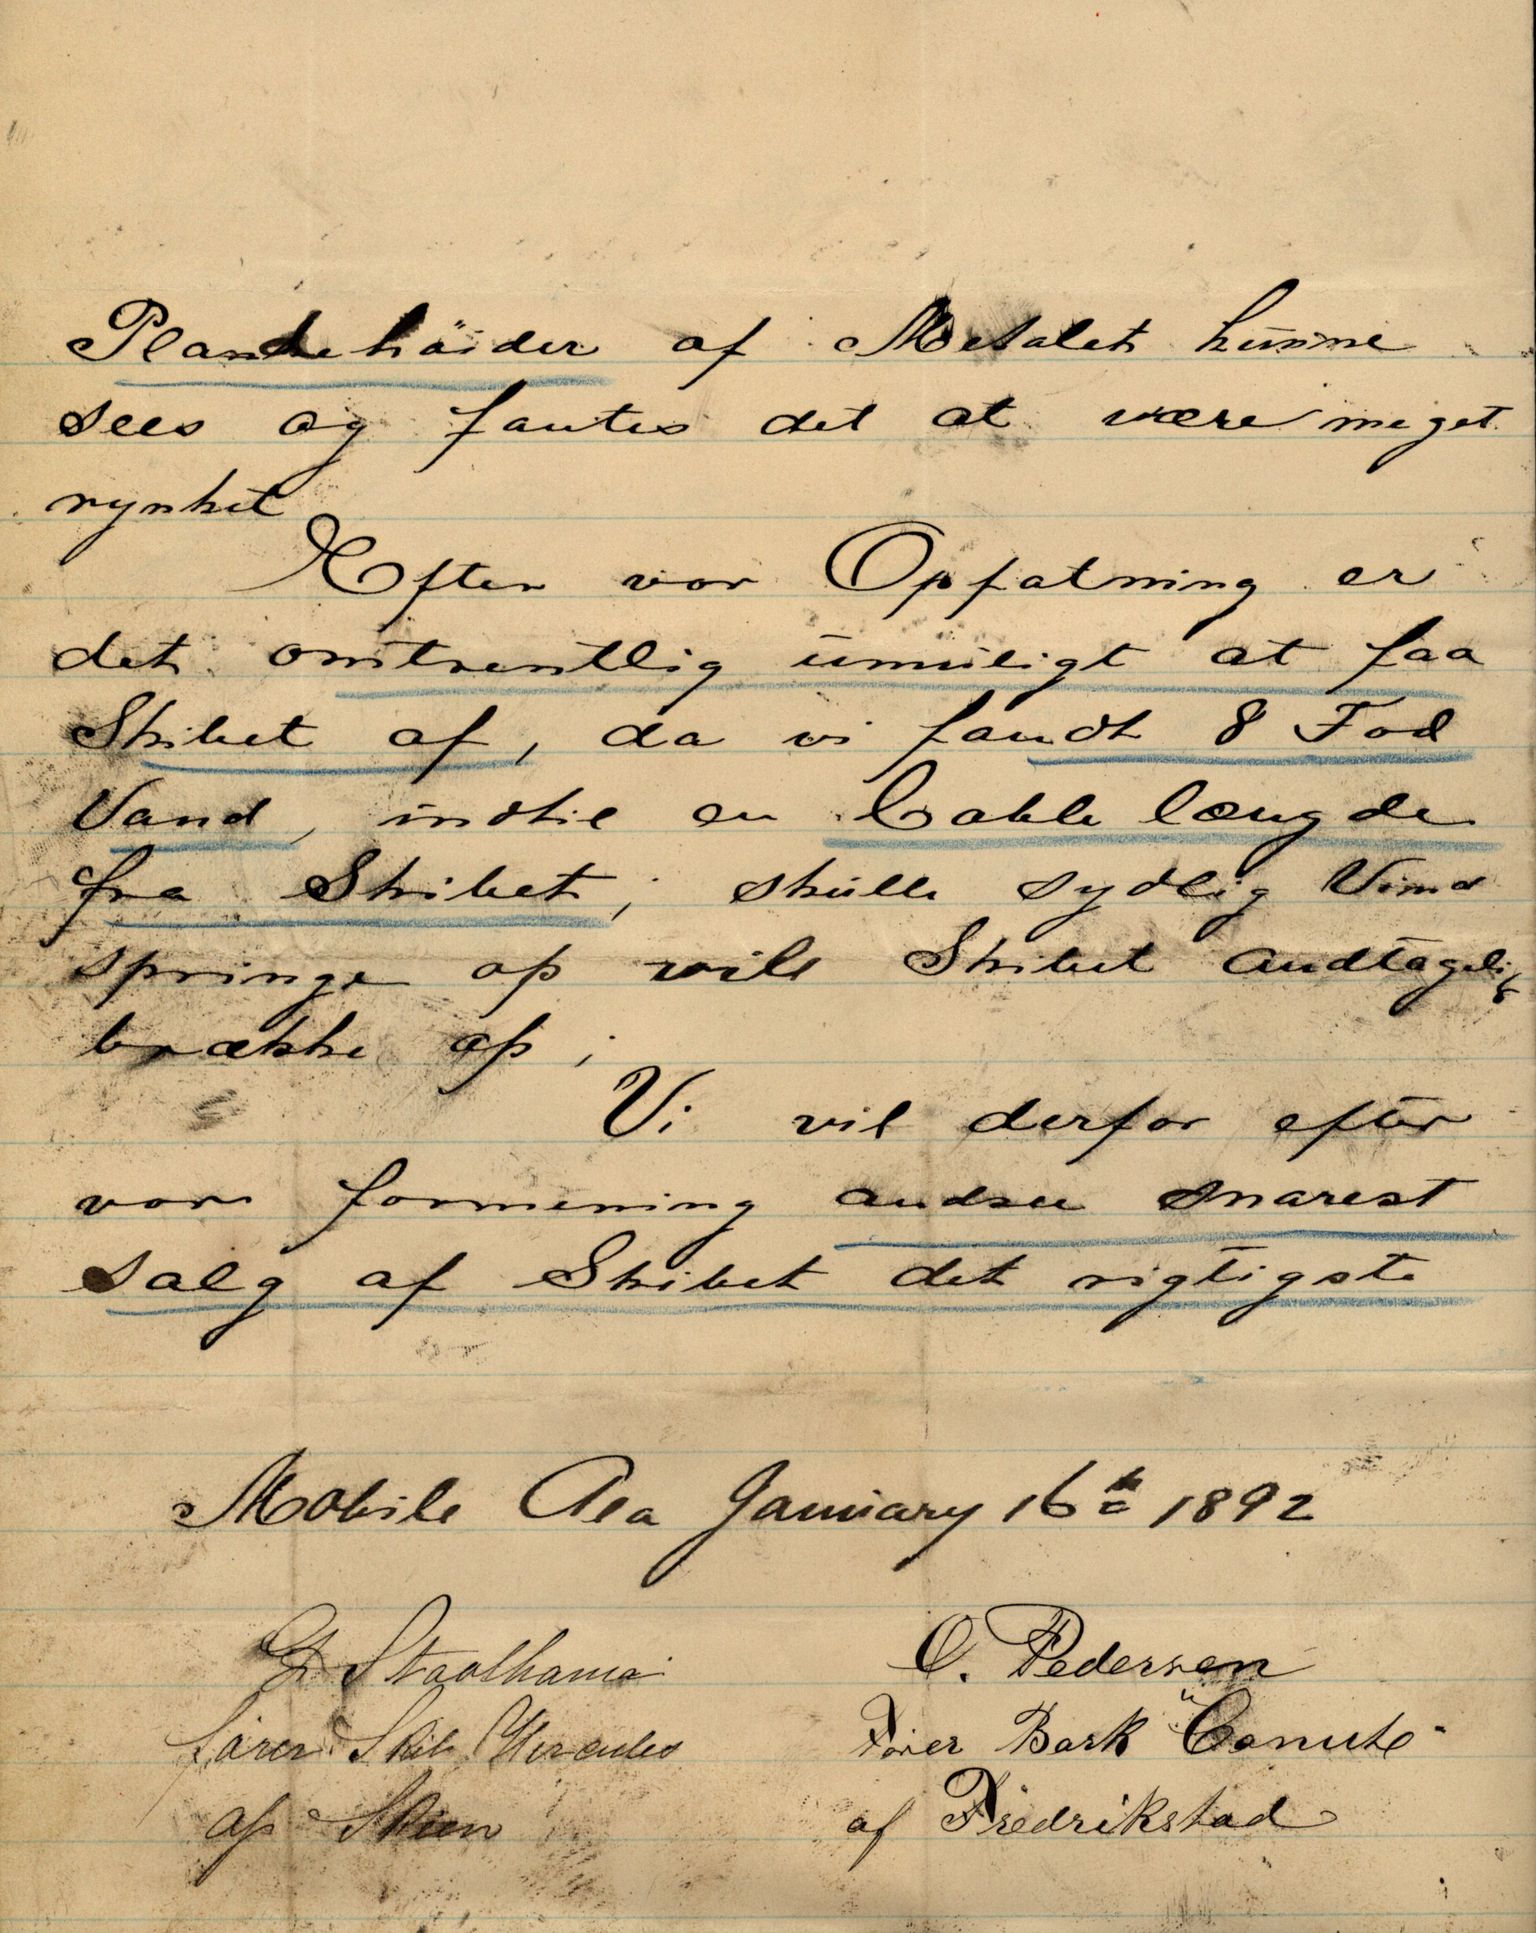 Plankehöider af Metalet kunne
sees og fantes det at være meget
rynket
Efter vor Opfatning er
det omtrentlig umuligt at faa
Skibet af, da vi fandt 8 Fod
Vand, indtil en Cable længde
fra Skibet; skulle sydlig Vind
springe op vile Skibet andtagelig
brække op;
Vi vil derfor efter
vor formening andsee snarest
salg af Skibet det rigtigste
Mobile Ala January 16th 1892
O. Pedersen
fører Skib Hercules
Fører Bark "Canute"
af Skien
af Fredrikstad